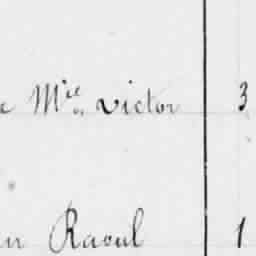 e Mie Victor 3
n Raoul 1